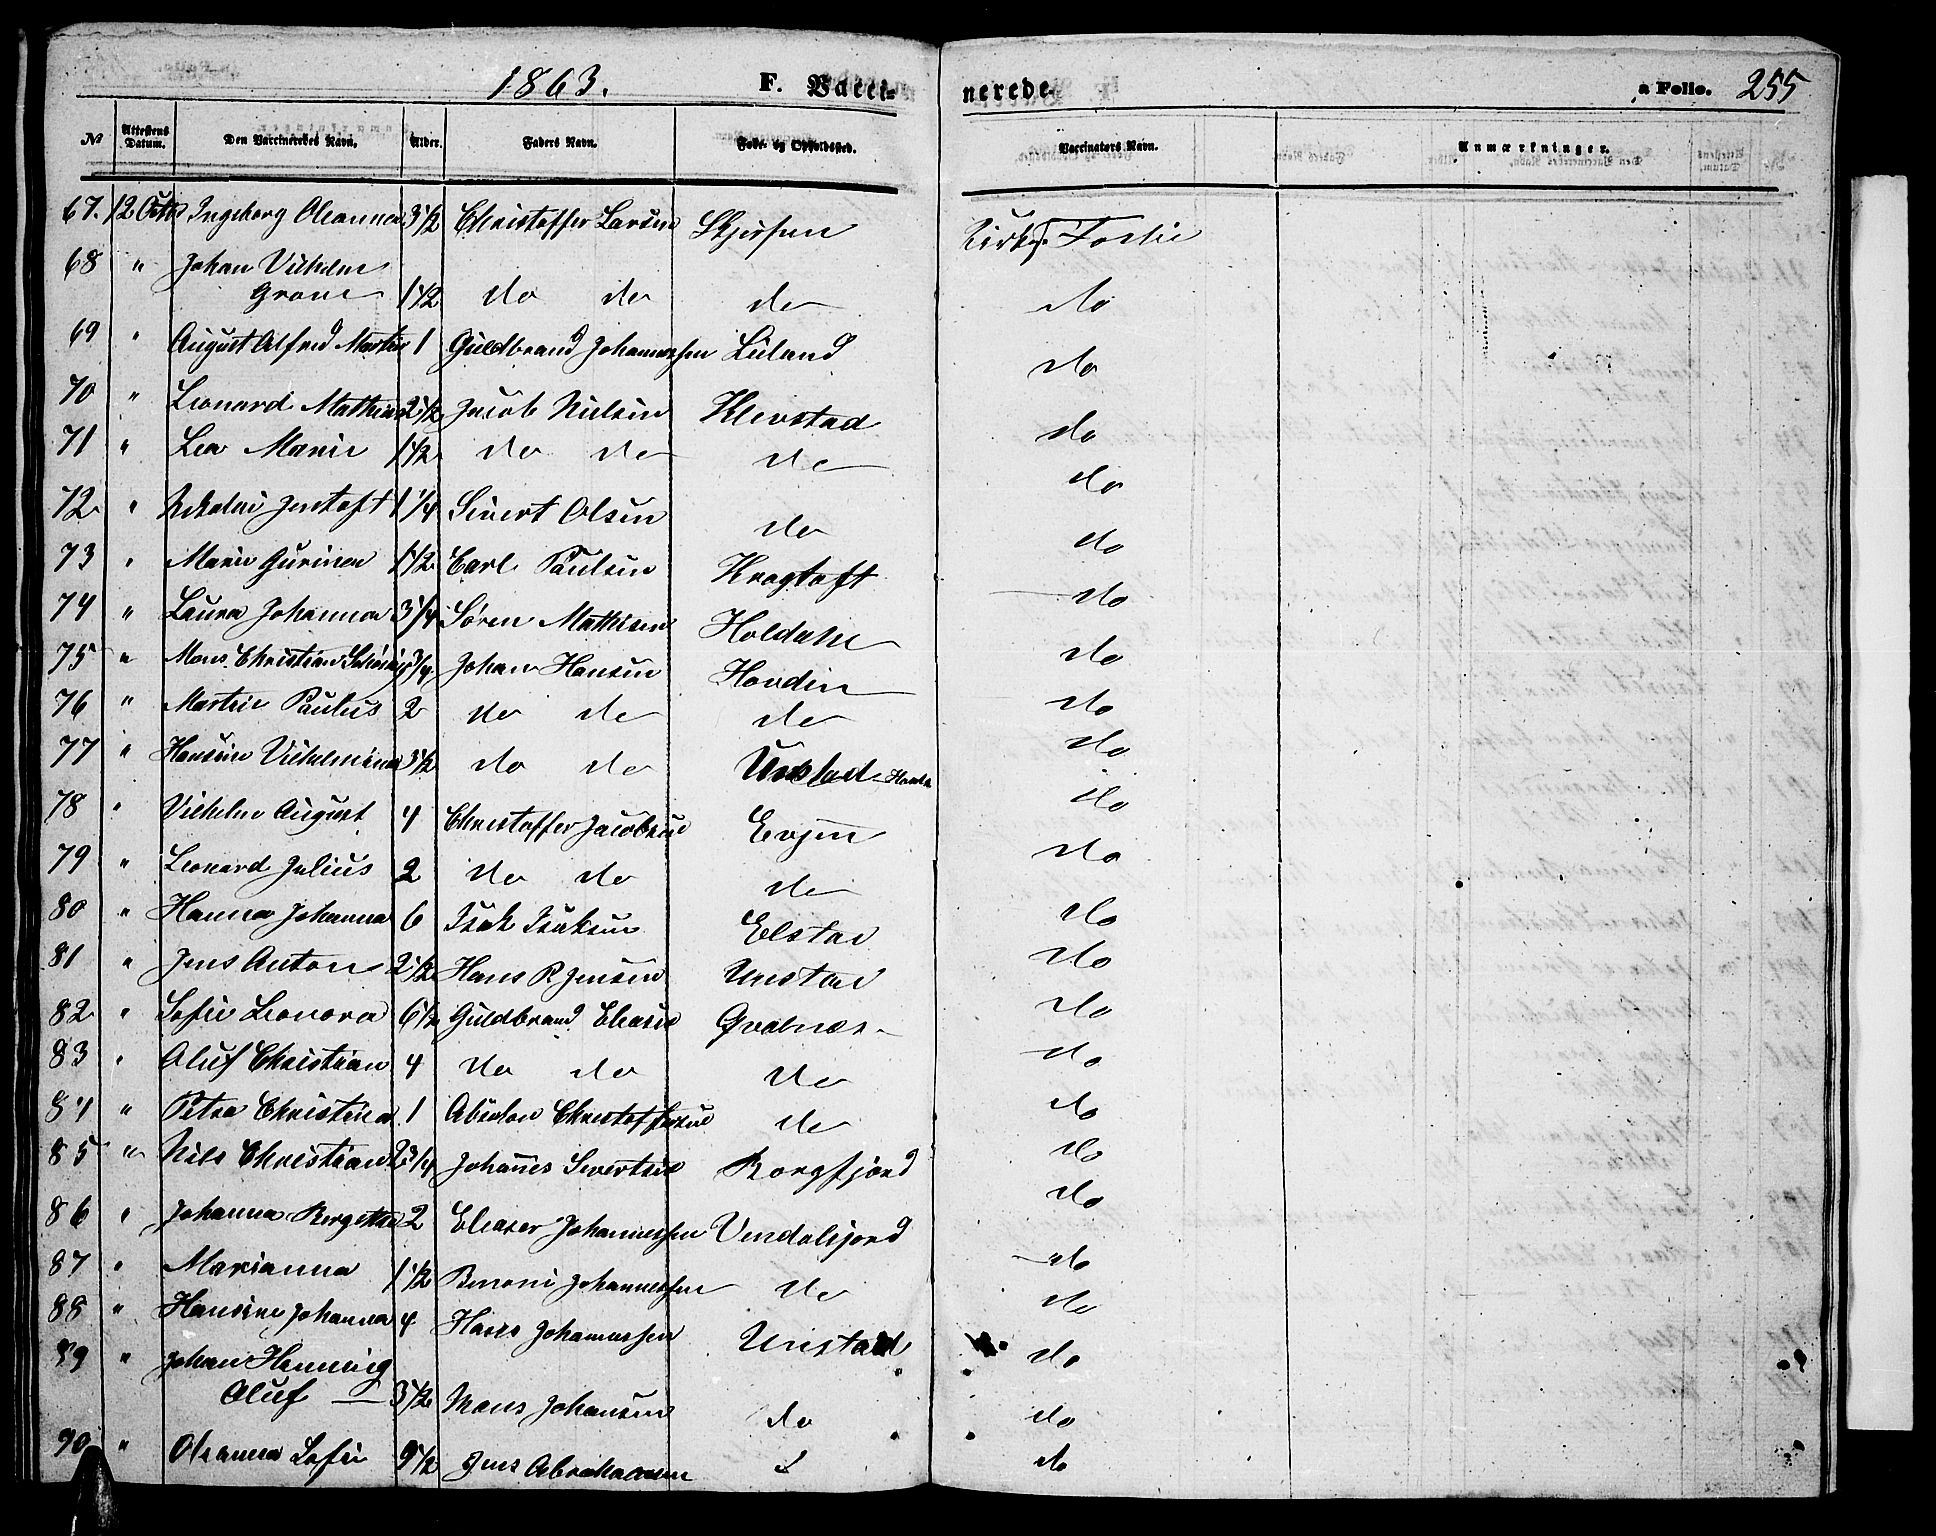 1863. F. Vacci- nerede a Folio. 255
No Attestens Datum. Den Vaccineredes Navn. Alder. Faders Navn. Føde- og Opholdssted. Vaccinators Navn. Anmærkninger.
67. 12 Octb Ingeborg Oleanna 3 1/2 Christoffer Larsen Skjersen Kirks. Fostie
68 " Johan Vilhelm
Grove 1 1/2 do do do do
69 " August Alfred Martin 1 Guldbrand Johannessen Liland do
70 " Leonard Mathias 2 1/2 Jacob Nielsen Klevstad do
71 " Lea Marie 1 1/2 do do do do
72 " Nikolai Justoft 1 1/4 Sivert Olsen do do
73 " Marie Gurina 1 1/2 Carl Paulsen Kragtoft do
74 " Laura Johanna 3/4 Søren Mathisen Holdahl do
75 " Mons Christian 3/4 Johan Hansen Hovden do
76 " Martin Paulus 2 do do do do
77 " Hansine Vilhelmina 3 1/2 do do Unstad do
78 " Vilhelm August 4 Christoffer Jacobsen Evjen do
79 " Leonard Julius 2 do do do do
80 " Hanna Johanna 6 Isak Isaksen Elstad do
81 " Jens Anton 2 1/2 Hans R Jensen Unstad do
82 " Sofie Leonora 6 1/2 Guldbrand Eliasen Qvalnæs do
83 " Oluf Christian 4 do do do do
84 " Petra Christina 1 Absolon Christoffersen do do
85 " Nils Christian 2 3/4 Johanes Sivertsen Borgfjord do
86 " Johanna Bergetha 2 Eleaser Johannessen Vendalsjord do
87 " Marianna 1 1/2 Benoni Johannessen do do
88 " Hansine Johanna 4 Hans Johannessen Unstad do
89 " Johan Henning
Oluf 3 1/2 Mons Johansen do do
90 " Oleanna Sofie 9 1/2 Jens Abrahamsen do